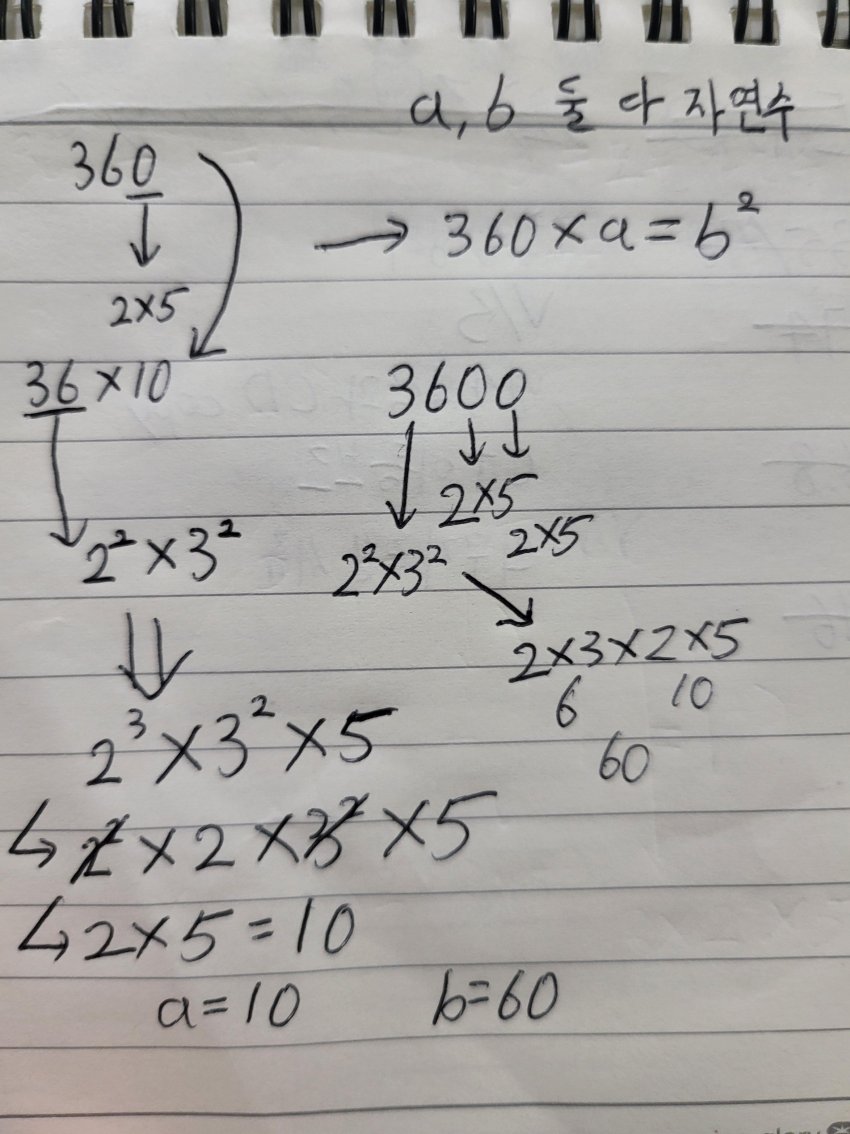 a, b 둘 다 자연수
360
→ 360×a=b²
↓
2×5
36×10
3600
↓ ↓ ↓
2×5
2×5
2²×3²
2²×3²
2×3×2×5
6 10
60
⇓
2³×3²×5
↳ 2²×2×3²×5
↳ 2×5=10
a=10 b=60